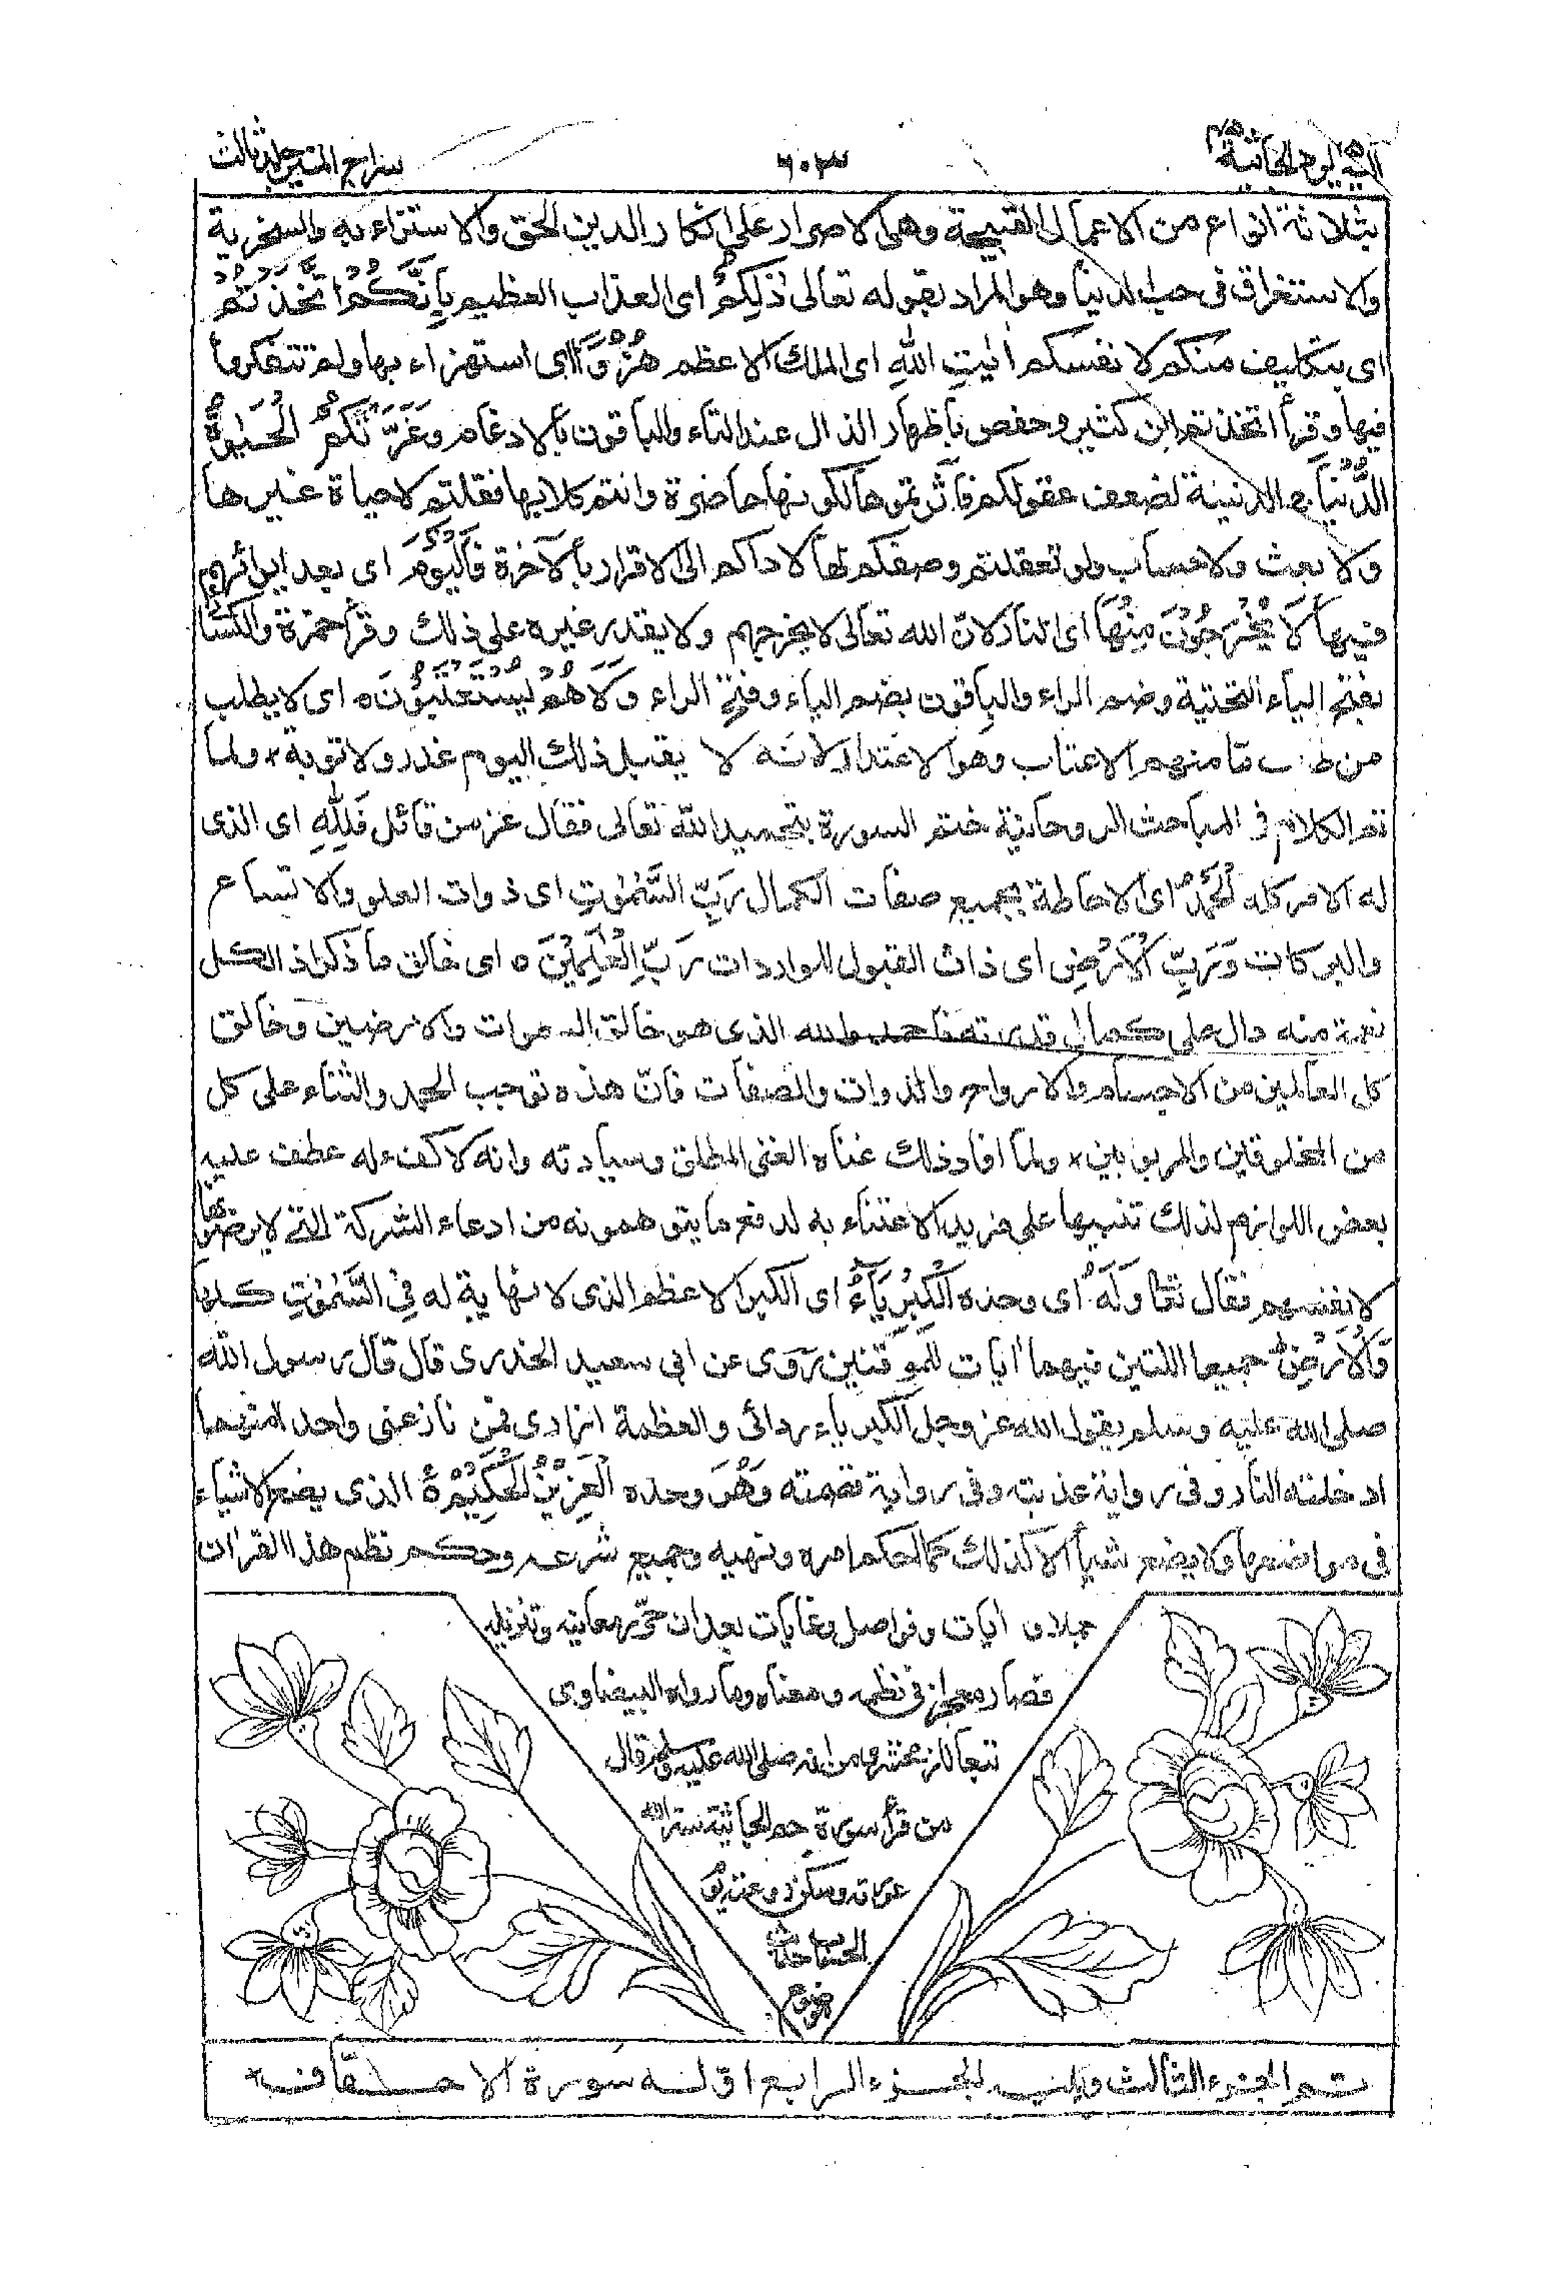 اليه ٢٥ الجاثية ٤٥ ٦٠٣ سراج المنير جلد ثالث
بثلاثة انواع من الاعمال القبيحة وهى الاصرار على انكار الدين الحق والاستهزاء به والسخرية
والاستغراق فى حب الدنيا وهو المراد بقوله تعالى ذٰلِكُمْ اى العذاب العظيم بِاَنَّكُمُ اتَّخَذْتُمْ
اى بتكليف منكم لانفسكم اٰيٰتِ اللّٰهِ اى الملك الاعظم هُزُوًا اى استهزاء بها ولم تتفكروا
فيها وقرأ اتخذتم ابن كثير وحفص باظهار الذال عند التاء والباقون بالادغام وَغَرَّتْكُمُ الْحَيٰوةُ
الدُّنْيَا ج الدنيئة لضعف عقولكم فآثرتموها لكونها حاضرة وانتم كالبهائم فقلتم لا حياة غيرها
ولا بعث ولا حساب ولو تعقلتم وصفكم لها لاداكم الى الاقرار بالآخرة فَالْيَوْمَ اى بعد ايوائهم
فيها لَا يُخْرَجُوْنَ مِنْهَا اى النار لان الله تعالى لا يخرجهم ولا يقدر غيره على ذلك وقرأ حمزة والكسائى
بفتح الياء التحتية وضم الراء والباقون بضم الياء وفتح الراء وَلَا هُمْ يُسْتَعْتَبُوْنَ ه اى لا يطلب
من طالب ما منهم الاعتاب وهو الاعتذار لانه لا يقبل ذلك اليوم عذر ولا توبة × ولما
تم الكلام فى المباحث الروحانية ختم السورة بتحميد الله تعالى فقال عز من قائل فَلِلّٰهِ اى الذى
له الامر كله الْحَمْدُ اى الاحاطة بجميع صفات الكمال رَبِّ السَّمٰوٰتِ اى ذوات العلو والاتساع
والبركات وَرَبِّ الْاَرْضِ اى ذات القبول للواردات رَبِّ الْعٰلَمِيْنَ ه اى خالق ما ذكر اذ الكل
نعمة منه دال على كمال قدرته فاحمدوا لله الذى هو خالق السموات والارضين وخالق
كل العالمين من الاجسام والارواح والذوات والصفات فان هذه توجب الحمد والثناء على كل
من المخلوقين والمربوبين × ولما افاد ذلك غناه الغنى المطلق وسيادته وانه لا كفء له عطف عليه
بعض اللوازم لذلك تنبيها على مزيد الاعتناء به لدفع ما يتوهمونه من ادعاء الشركة التى لا يرضونها
لانفسهم فقال تعا وَلَهُ اى وحده الْكِبْرِيَآءُ اى الكبر الاعظم الذى لا نهاية له فِى السَّمٰوٰتِ كلها
وَالْاَرْضِ جميعا اللتين فيهما اٰيات للموقنين روى عن ابى سعيد الخدرى قال قال رسول الله
صلى الله عليه وسلم يقول الله عز وجل الكبرياء ردائى والعظمة ازارى فمن نازعنى واحدا منهما
ادخلته النار وفى رواية عذبته وفى رواية قصمته وَهُوَ وحده الْعَزِيْزُ الْحَكِيْمُ ه الذى يضع الاشياء
فى مواضعها ولا يضع شيأ الا كذلك كما احكم امره ونهيه وجميع شرعه وحكم نظم هذا القرآن
جملا و اٰيات وفواصل وغايات بعد ان حرر معانيه وتنزيله
فصار معجزا فى نظمه ومعناه وما رواه البيضاوى
تبعا للزمخشرى من انه صلى الله عليه وسلم قال
من قرأ سورة حم الجاثية ستر الله
عورته وسكن روعته يوم
الحساب حديث
موضوع
تم الجزء الثالث ويليه الجزء الرابع اوله سورة الاحقاف